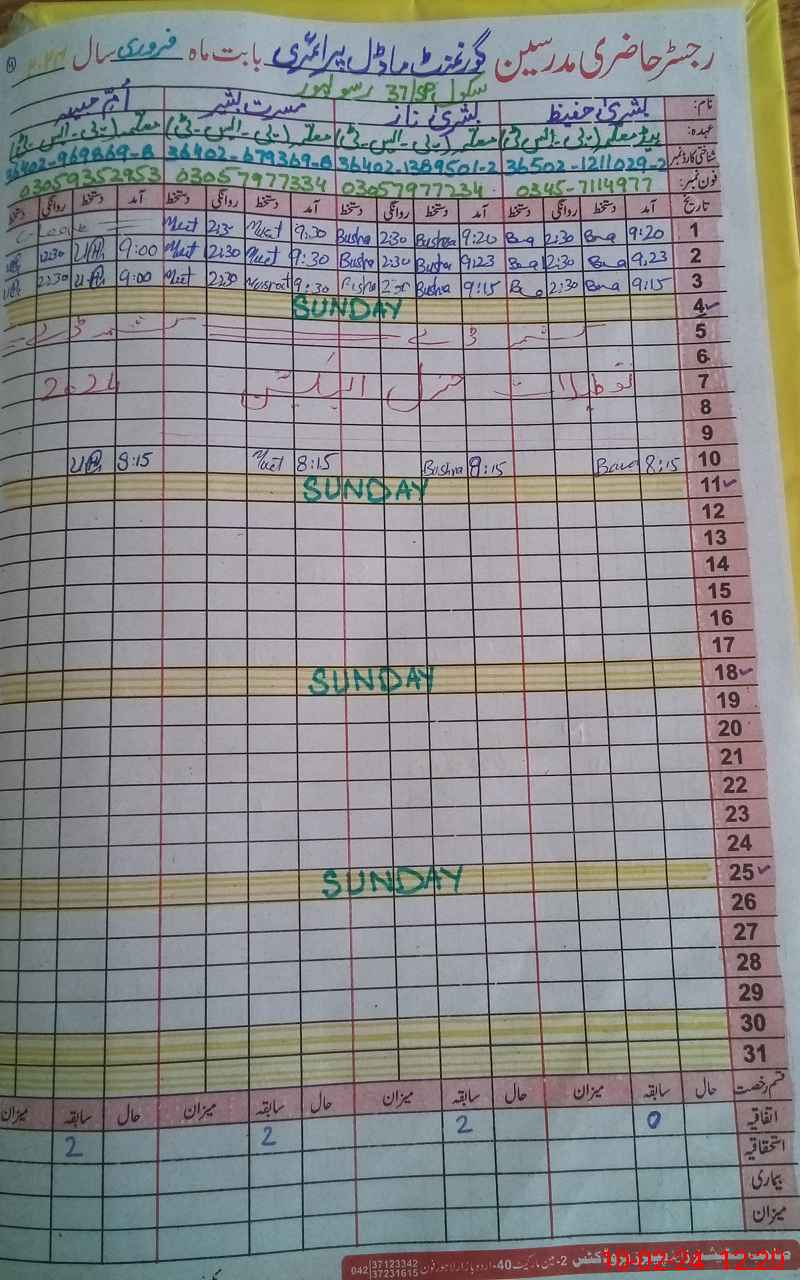 رجسٹر حاضری مدرسین گورنمنٹ ماڈل پرائمری بابت ماہ فروری سال
سکول 37/SP رسولپور
نام: بشریٰ حفیظ بشریٰ ناز مسرت بشیر اُم حبیبہ
عہدہ: ہیڈ معلمہ (پی-ایس-ٹی) معلمہ (پی-ایس-ٹی) معلمہ (پی-ایس-ٹی) معلمہ (پی-ایس-ٹی)
شناختی کارڈ نمبر 36502-1211029-2 36402-1389501-2 36402-679369-8 36402-969869-8
فون نمبر: 0345-7114977 03057977234 03057977334 03059352953
تاریخ آمد دستخط روانگی دستخط آمد دستخط روانگی دستخط آمد دستخط روانگی دستخط آمد دستخط روانگی دستخط
1 9:20 2:30 9:20 Bushra 2:30 Bushra 9:30 2:30 C-Leave
2 9:23 2:30 9:23 Bushra 2:30 Bushra 9:30 12:30 9:00 12:30
3 9:15 2:30 9:15 Bushra 2:30 9:30 Musrat 2:30 9:00 2:30
4 SUNDAY
5 کشمیر ڈے کشمیر ڈے
6
7 تعطیلات جنرل الیکشن 2024
8
9
10 8:15 8:15 Bushra 8:15 8:15
11 SUNDAY
12
13
14
15
16
17
18 SUNDAY
19
20
21
22
23
24
25 SUNDAY
26
27
28
29
30
31
قسم رخصت حال سابقہ میزان حال سابقہ میزان حال سابقہ میزان حال سابقہ میزان
اتفاقیہ 0 2 2 2
استحقاقیہ
بیماری
میزان
2-مین مارکیٹ 40-اردو بازار لاہور فون 042 37123342 37231615
10-02-24 12:20